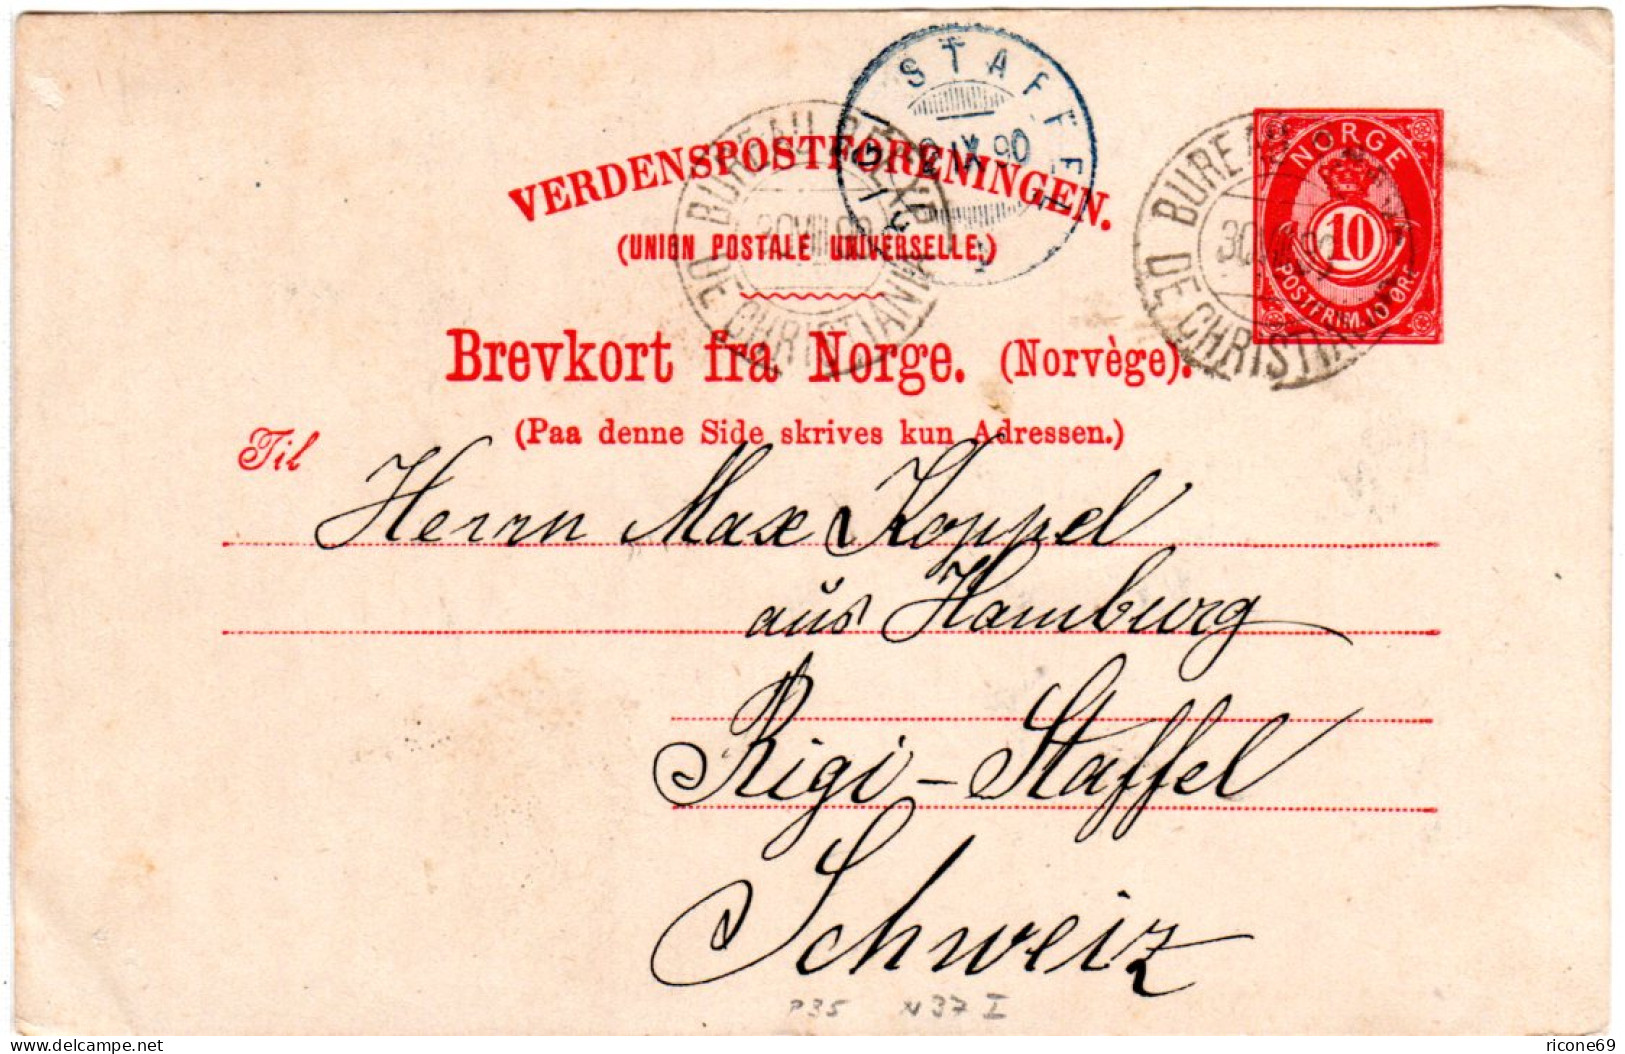 STAFFEL
RIGI
2 IX 90
VERDENSPOSTFORENINGEN.
(UNION POSTALE UNIVERSELLE.)
BUREAU DE
DE CHRISTIANIA
30 VIII 90
NORGE
10
POSTFRIM. 10 ØRE
BUREAU
DE CHRISTIANIA
30 VIII 90
Brevkort fra Norge. (Norvège).
(Paa denne Side skrives kun Adressen.)
Til
Herrn Max Koppel
aus Hamburg
Rigi-Staffel
Schweiz
P35 N37 I
Delcampe.net
ricone69